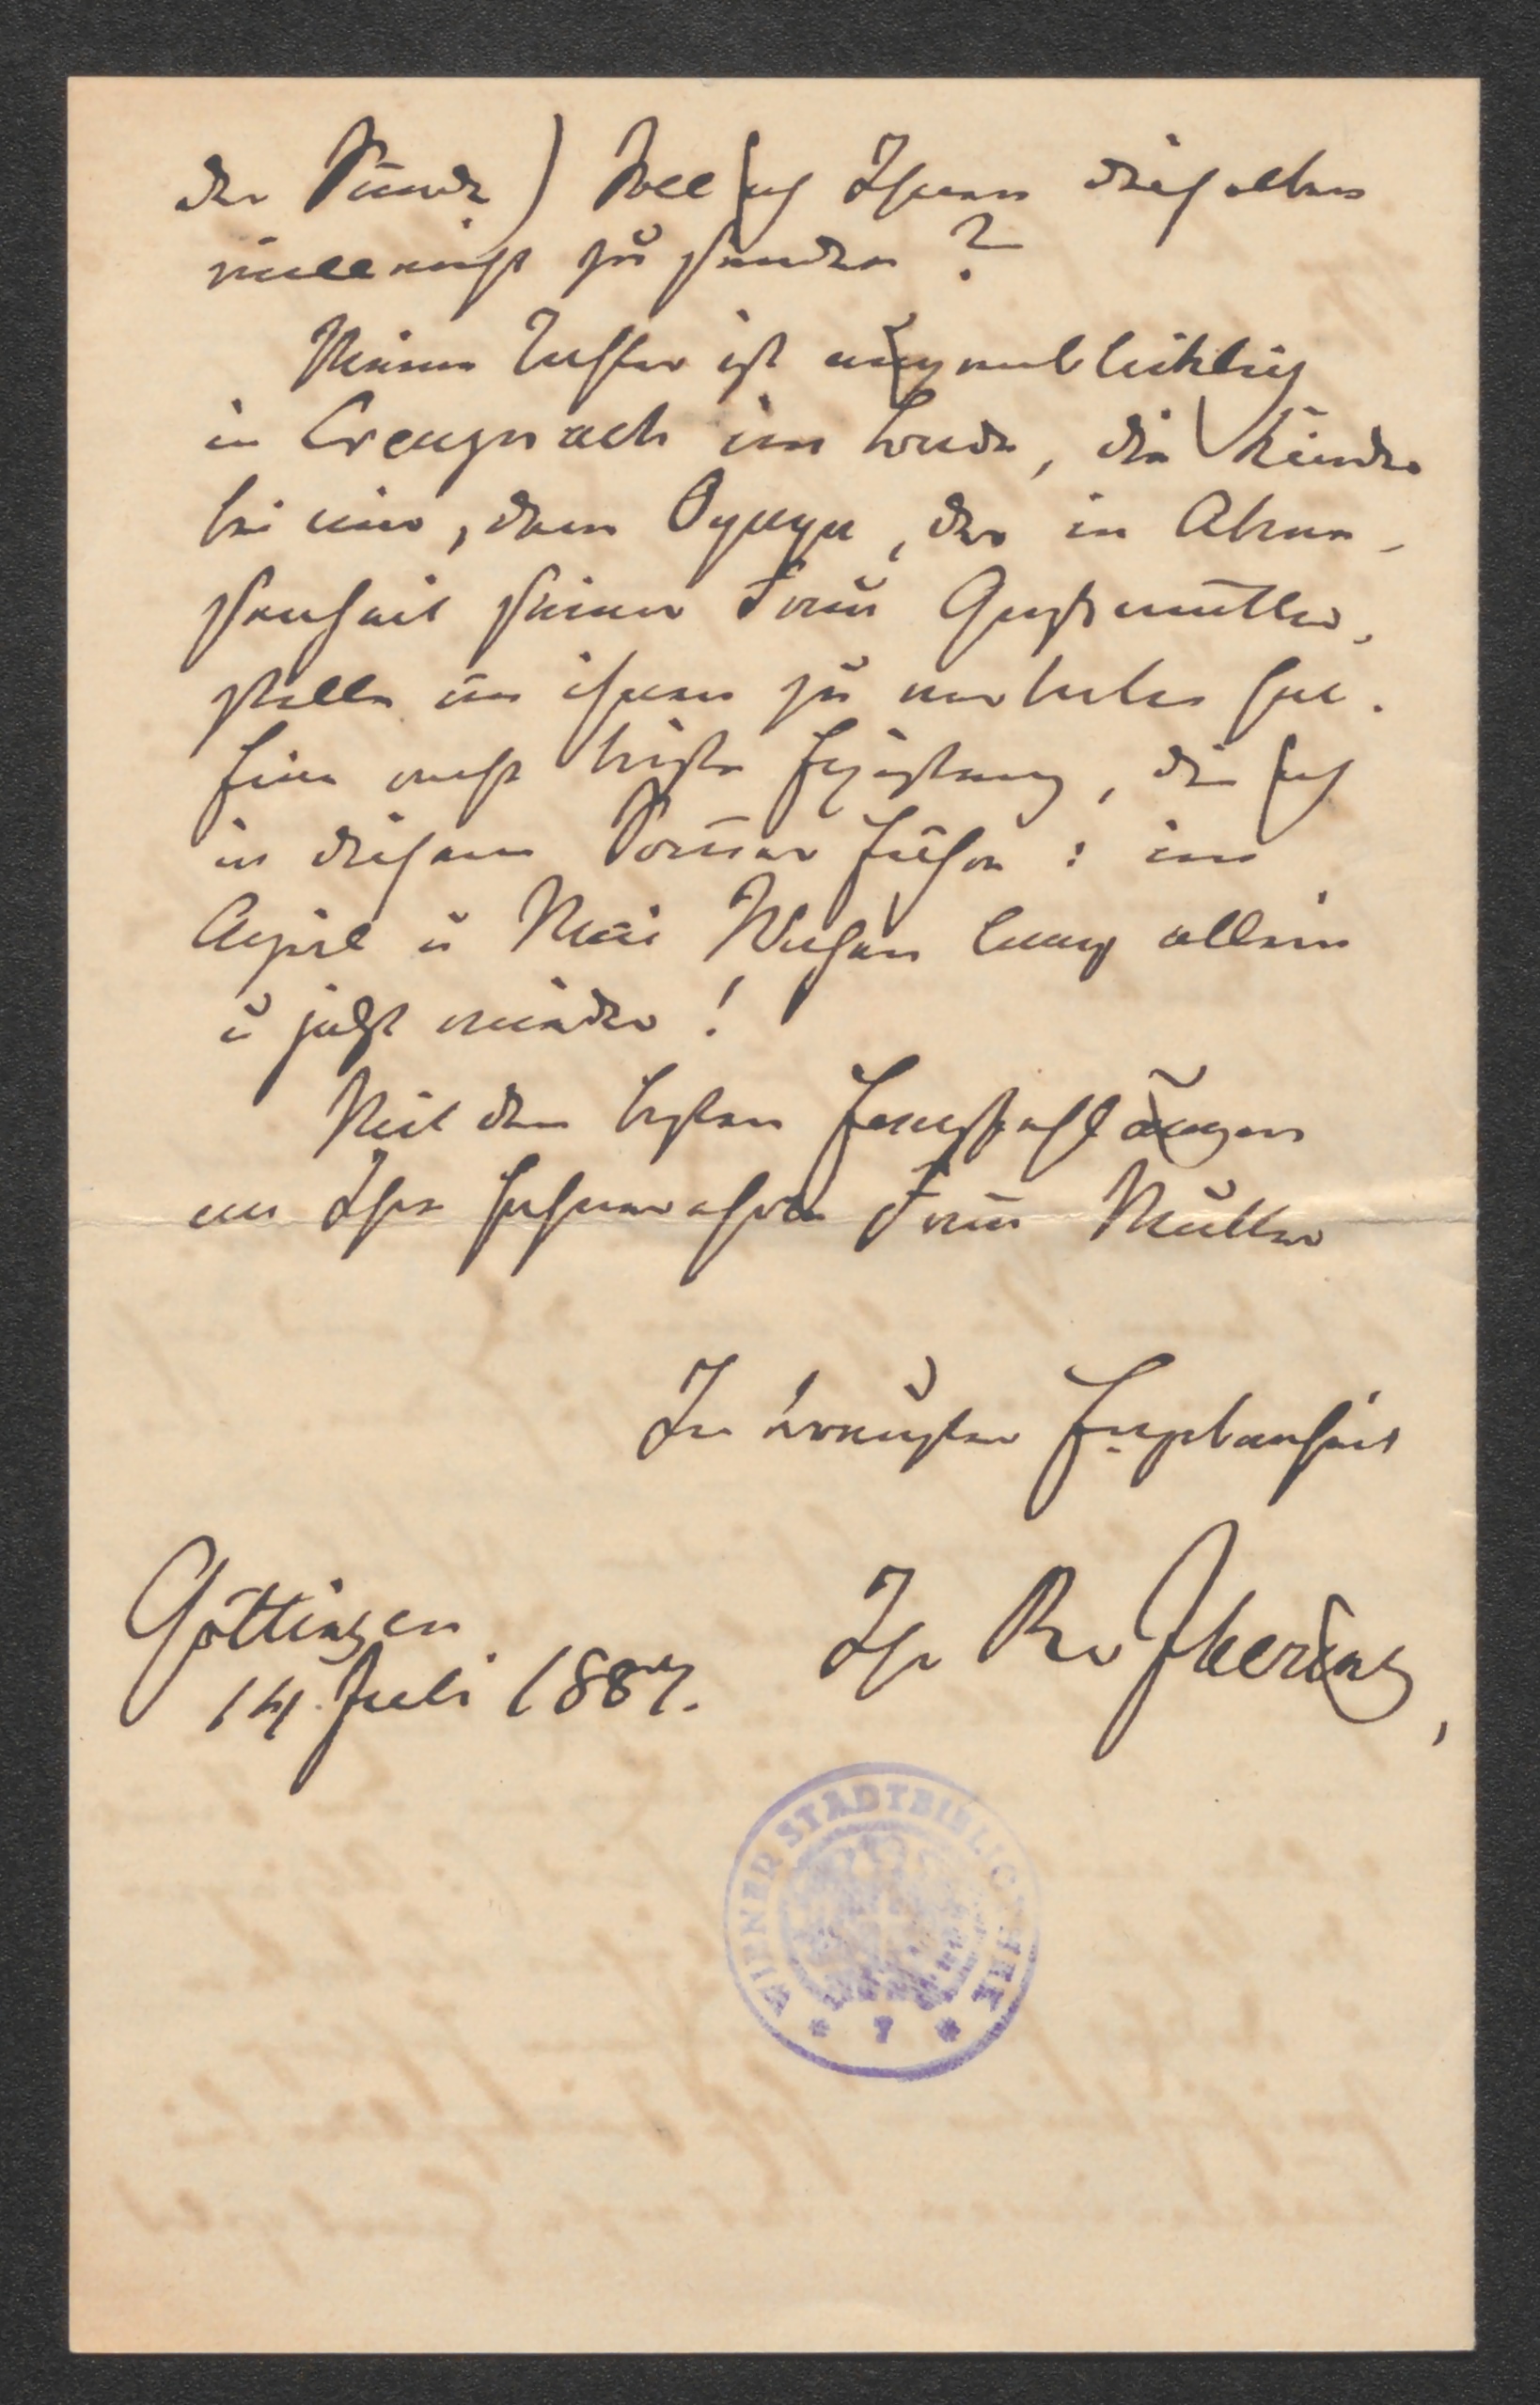 der Sünde) Soll ich Ihnen dieselben
vielleicht zu senden?
Meine Tochter ist augenblicklich
in Creuznach im Bade, die Kinder
bei mir, dem Opapa, der in Abwe-
senheit seiner Frau Großmutter-
stelle an ihnen zu vertreten hat.
Eine recht triste Existenz, die ich
in diesem Sommer führe: im
April u Mai Wochen lang allein
u jetzt wieder!
Mit den besten Empfehlungen
an Ihre hochverehrte Frau Mutter
In treuester Ergebenheit
Ihr R v Jhering
Göttingen
14. Juli 1887.
WIENER STADTBIBLIOTHEK
* 7 *